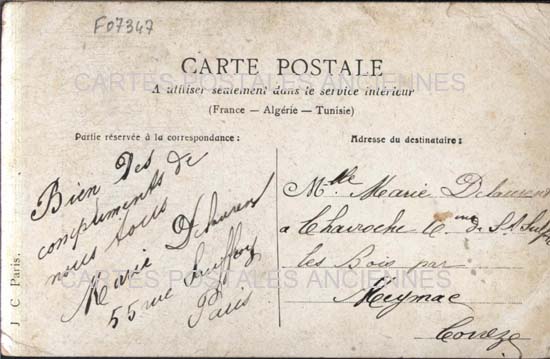 F07347
CARTE POSTALE
CARTES POSTALES ANCIENNES
A utiliser seulement dans le service intérieur
(France — Algérie — Tunisie)
Partie réservée à la correspondance :
Adresse du destinataire :
Bien des
compliments de
nous tous
Marie Delaurens
55 rue
Paris
Mlle Marie Delaurens
a Chavroche Cne de St Sulpice
les Bois par
Meymac
Corrèze
CARTES POSTALES ANCIENNES
J. C. Paris.